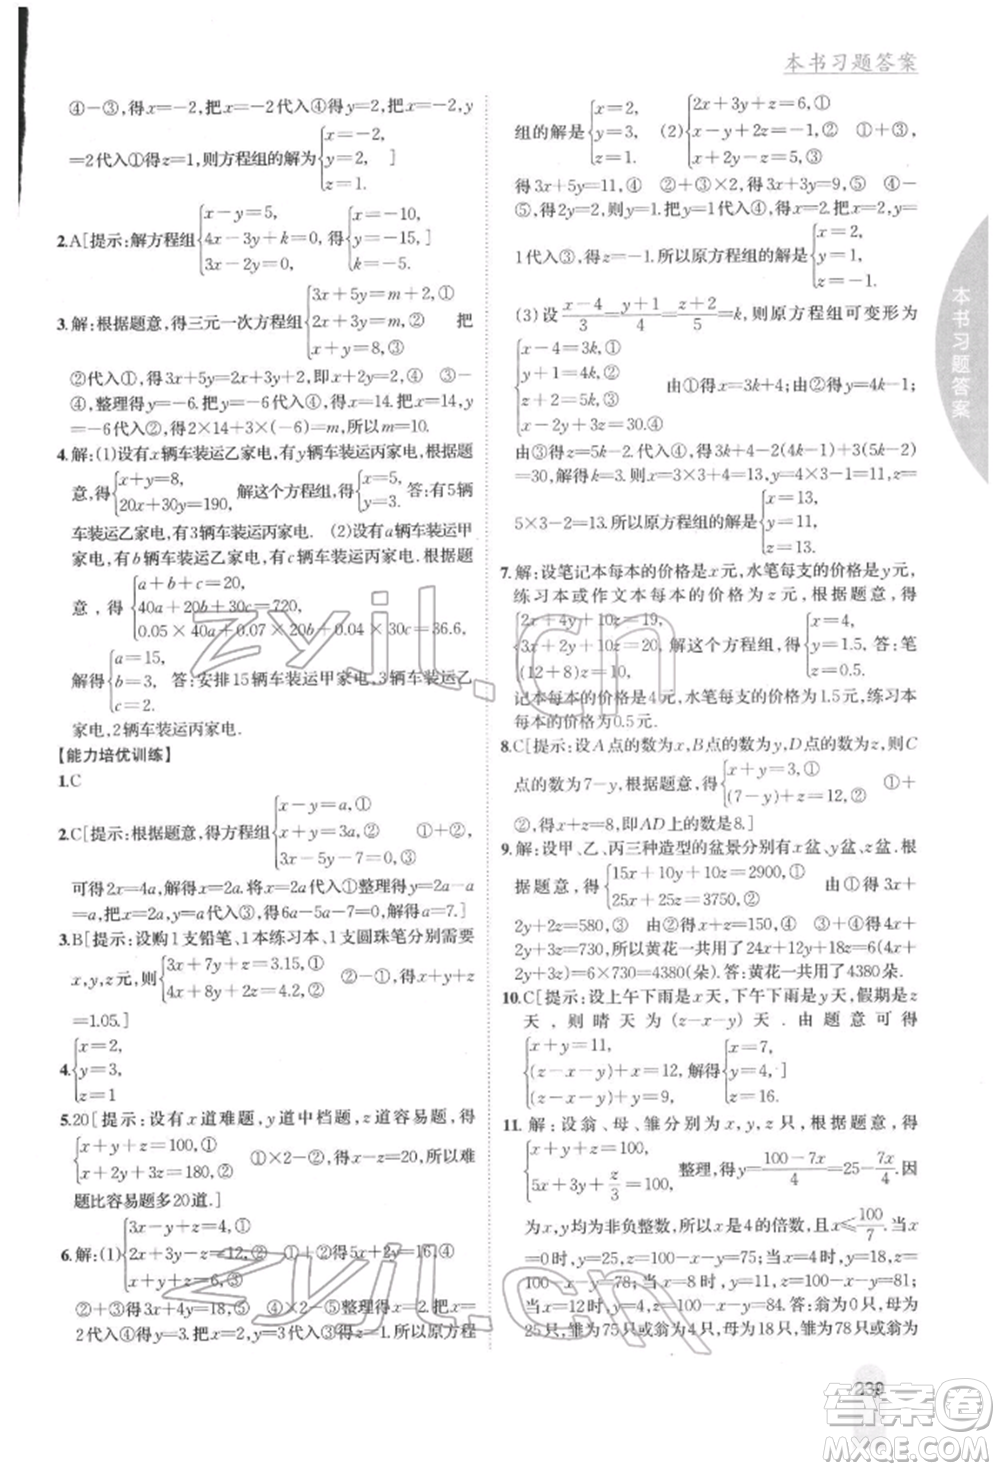 本书习题答案
④-③,得x=-2,把x=-2代入④得y=2,把x=-2,y
=2代入①得z=1,则方程组的解为{x=-2, y=2, z=1.]
2.A[提示:解方程组{x-y=5, 4x-3y+k=0, 3x-2y=0, 得{x=-10, y=-15, k=-5.]
3.解:根据题意,得三元一次方程组{3x+5y=m+2,① 2x+3y=m,② x+y=8,③ 把
②代入①,得3x+5y=2x+3y+2,即x+2y=2,④ ③-
④,整理得y=-6.把y=-6代入③得x=14.把x=14,y
=-6代入②得2×14+3×(-6)=m,所以m=10.
4.解:(1)设有x辆车装运乙家电,有y辆车装运丙家电.根据题意,得
{x+y=8, 20x+30y=190, 解这个方程组得{x=5, y=3. 答:有5辆
车装运乙家电,有3辆车装运丙家电. (2)设有a辆车装运甲
家电,有b辆车装运乙家电,有c辆车装运丙家电.根据题
意,得{a+b+c=20, 40a+20b+30c=720, 0.05×40a+0.07×20b+0.04×30c=36.6,
解得{a=15, b=3, c=2. 答:安排15辆车装运甲家电,3辆车装运乙
家电,2辆车装运丙家电.
【能力培优训练】
1.C
2.C[提示:根据题意,得方程组{x-y=a,① x+y=3a,② 3x-5y-7=0③ ①+②,
可得2x=4a,解得x=2a.将x=2a代入①整理得y=2a-a
=a,把x=2a,y=a代入③,得6a-5a-7=0,得a=7.]
3.B[提示:设购1支铅笔、1本练习本、1支圆珠笔分别需要
x,y,z元,则{3x+7y+z=3.15,① 4x+10y+z=4.2.② ①×3-②×2,得x+y+z
=1.05.]
4.{x=2, y=3, z=1
5.20[提示:设有x道难题,y道中档题,z道容易题,根据题意,得
{x+y+z=100,① x+2y+3z=180,② ①×2-②,得x-z=20,所以难
题比容易题多20道.]
6.解:(1){3x-y+z=4,① 2x+3y-z=12,② x+y+z=6,③ ①+②得5x+2y=16,④
②+③得3x+4y=18,⑤ ④×2-⑤得x=2.把x=2
代入④得y=3.把x=2,y=3代入③得z=1.所以原方程
组的解是{x=2, y=3, z=1. (2){2x+3y+z=6,① x-y+2z=-1,② x+2y-z=5.③ ①+③
得3x+5y=11,④ ②+③×2得3x+3y=9,⑤ ④-
⑤,得2y=2,得y=1.把y=1代入⑤得x=2.把x=2,y=
1代入③,得z=-1.所以原方程组的解是{x=2, y=1, z=-1.
(3)设(x-4)/3=(y+1)/4=(z+2)/5=k,则原方程组可变形为
{x-4=3k,① y+1=4k,② z+2=5k,③ x-2y+3z=30.④ 由①得x=3k+4;由②得y=4k-1;
由③得z=5k-2.代入④得3k+4-2(4k-1)+3(5k-2)
=30,解得k=3.所以x=3×3+4=13,y=4×3-1=11,z=
5×3-2=13.所以原方程组的解是{x=13, y=11, z=13.
7.解:设笔记本每本的价格是x元,水笔每支的价格是y元,
练习本或作文本每本的价格为z元,根据题意,得
{2x+4y+10z=19, 3x+2y+10z=20, (12+8)z=10, 解这个方程组,得{x=4, y=1.5, z=0.5. 答:笔
记本每本的价格是4元,水笔每支的价格为1.5元,练习本
每本的价格为0.5元.
8.C[提示:设A点的数为x,B点的数为y,D点的数为z,则C
点的数为7-y,根据题意,得{x+y=3,① (7-y)+z=12,② ①+
②,得x+z=8,即AD上的数是8.]
9.解:设甲、乙、丙三种造型的盆景分别有x盆、y盆、z盆.根
据题意,得{15x+10y+10z=2900,① 25x+25z=3750,② 由①得3x+
2y+2z=580,③ 由②得x+z=150,④ ③+④得4x+
2y+3z=730,所以黄花一共用了24x+12y+18z=6(4x
+2y+3z)=6×730=4380(朵).答:黄花一共用了4380朵.
10.C[提示:设上午下雨是x天,下午下雨是y天,假期是z
天,则晴天为(z-x-y)天.由题意可得
{x+y=11, (z-x-y)+x=12, (z-x-y)+y=9, 解得
11.解:设翁、母、雏分别为x,y,z只,根据题意,得
{x+y+z=100, 5x+3y+z/3=100, 整理,得y=(100-7x)/4=25-7x/4.因
为x,y,z均为非负整数,所以x是4的倍数,且x≤100/7.当x
=0时,y=25,z=100-x-y=75;当x=4时,y=18,z=
100-x-y=78;当x=8时,y=11,z=100-x-y=81;
当x=12时,y=4,z=100-x-y=84.答:翁为0只,母为
25只,雏为75只或翁为4只,母为18只,雏为78只或翁为
本书习题答案
239
zyjl.cn
zyjl.cn
答案卷
MXQE.COM